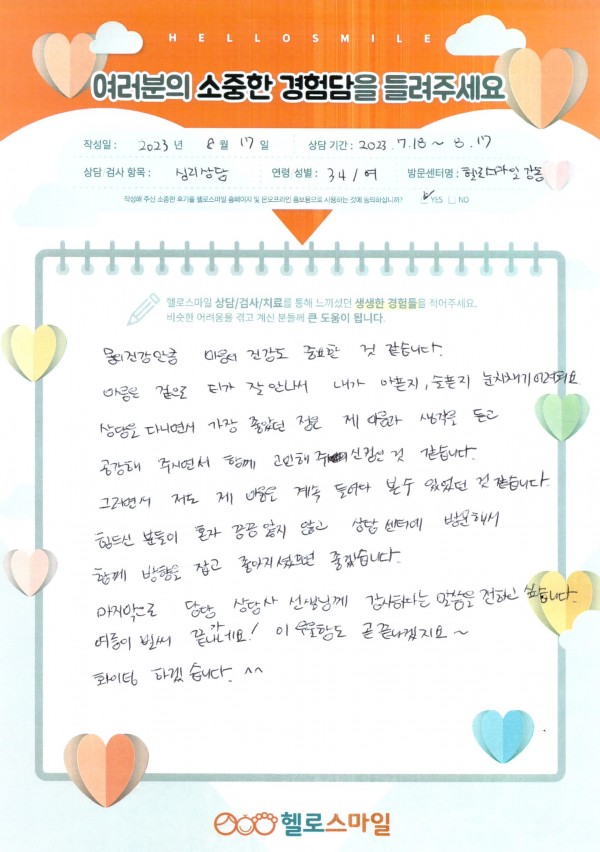 HELLOSMILE
여러분의 소중한 경험담을 들려주세요
작성일 : 2023 년 8 월 17 일 상담 기간 : 2023. 7.18 ~ 8.17
상담 검사 항목 : 심리상담 연령 성별 : 34 / 여 방문센터명 : 헬로스마일 강동
작성해 주신 소중한 후기를 헬로스마일 홈페이지 및 온오프라인 홍보용으로 사용하는 것에 동의하십니까? YES NO
헬로스마일 상담/검사/치료를 통해 느끼셨던 생생한 경험들을 적어주세요.
비슷한 어려움을 겪고 계신 분들께 큰 도움이 됩니다.
몸의 건강만큼 마음의 건강도 중요한 것 같습니다.
마음은 겉으로 티가 잘 안나서 내가 아픈지, 슬픈지 눈치채기 어려워요
상담을 다니면서 가장 좋았던 점은 제 마음과 생각을 듣고
공감해 주시면서 함께 고민해 주신점인 것 같습니다.
그러면서 저도 제 마음을 계속 들여다 볼 수 있었던 것 같습니다.
힘드신 분들이 혼자 끙끙 앓지 않고 상담 센터에 방문해서
함께 방향을 잡고 좋아지셨으면 좋겠습니다.
마지막으로 담당 상담사 선생님께 감사하다는 말씀을 전하고 싶습니다.
여름이 벌써 끝나가네요! 이 우울함도 곧 끝나겠지요~
화이팅 하겠습니다. ^^
헬로스마일